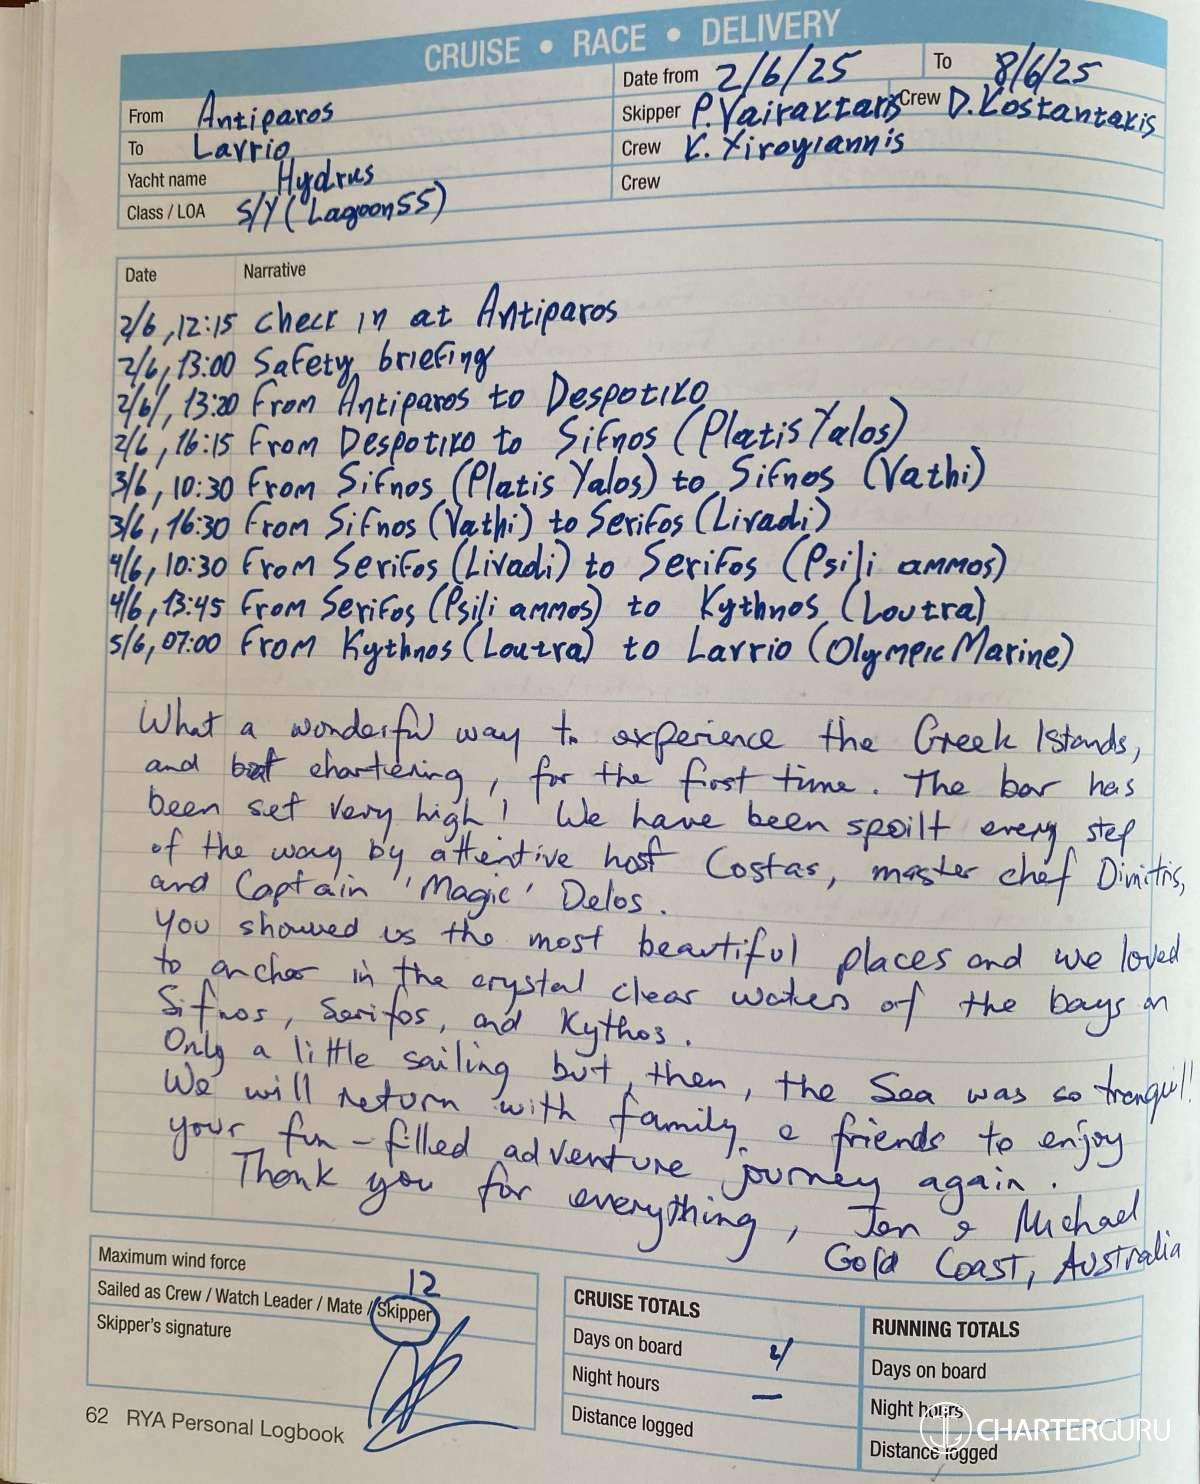 CRUISE • RACE • DELIVERY
From Antiparos
To Lavrio
Yacht name Hydrus
Class / LOA S/Y (Lagoon 55)
Date from 2/6/25 To 8/6/25
Skipper P. Vairaktaris Crew D. Kostantakis
Crew K. Xirogiannis
Crew
Date Narrative
2/6, 12:15 check in at Antiparos
2/6, 13:00 Safety briefing
2/6, 13:20 From Antiparos to Despotiko
2/6, 16:15 From Despotiko to Sifnos (Platis Yalos)
3/6, 10:30 From Sifnos (Platis Yalos) to Sifnos (Vathi)
3/6, 16:30 From Sifnos (Vathi) to Serifos (Livadi)
4/6, 10:30 From Serifos (Livadi) to Serifos (Psili ammos)
4/6, 13:45 From Serifos (Psili ammos) to Kythnos (Loutra)
5/6, 07:00 From Kythnos (Loutra) to Lavrio (Olympic Marine)
What a wonderful way to experience the Greek Islands,
and chartering, for the first time. The bar has
been set very high! We have been spoilt every step
of the way by attentive host Costas, master chef Dimitris,
and Captain 'Magic' Delos.
You showed us the most beautiful places and we loved
to anchor in the crystal clear waters of the bays on
Sifnos, Serifos, and Kythos.
Only a little sailing but, then, the Sea was so tranquil!
We will return with family & friends to enjoy
your fun-filled adventure journey again.
Thank you for everything, Jen & Michael
Gold Coast, Australia
Maximum wind force
12
Sailed as Crew / Watch Leader / Mate / Skipper
Skipper's signature
CRUISE TOTALS
Days on board
Night hours –
Distance logged
RUNNING TOTALS
Days on board
Night hours
Distance logged
62 RYA Personal Logbook
CHARTERGURU